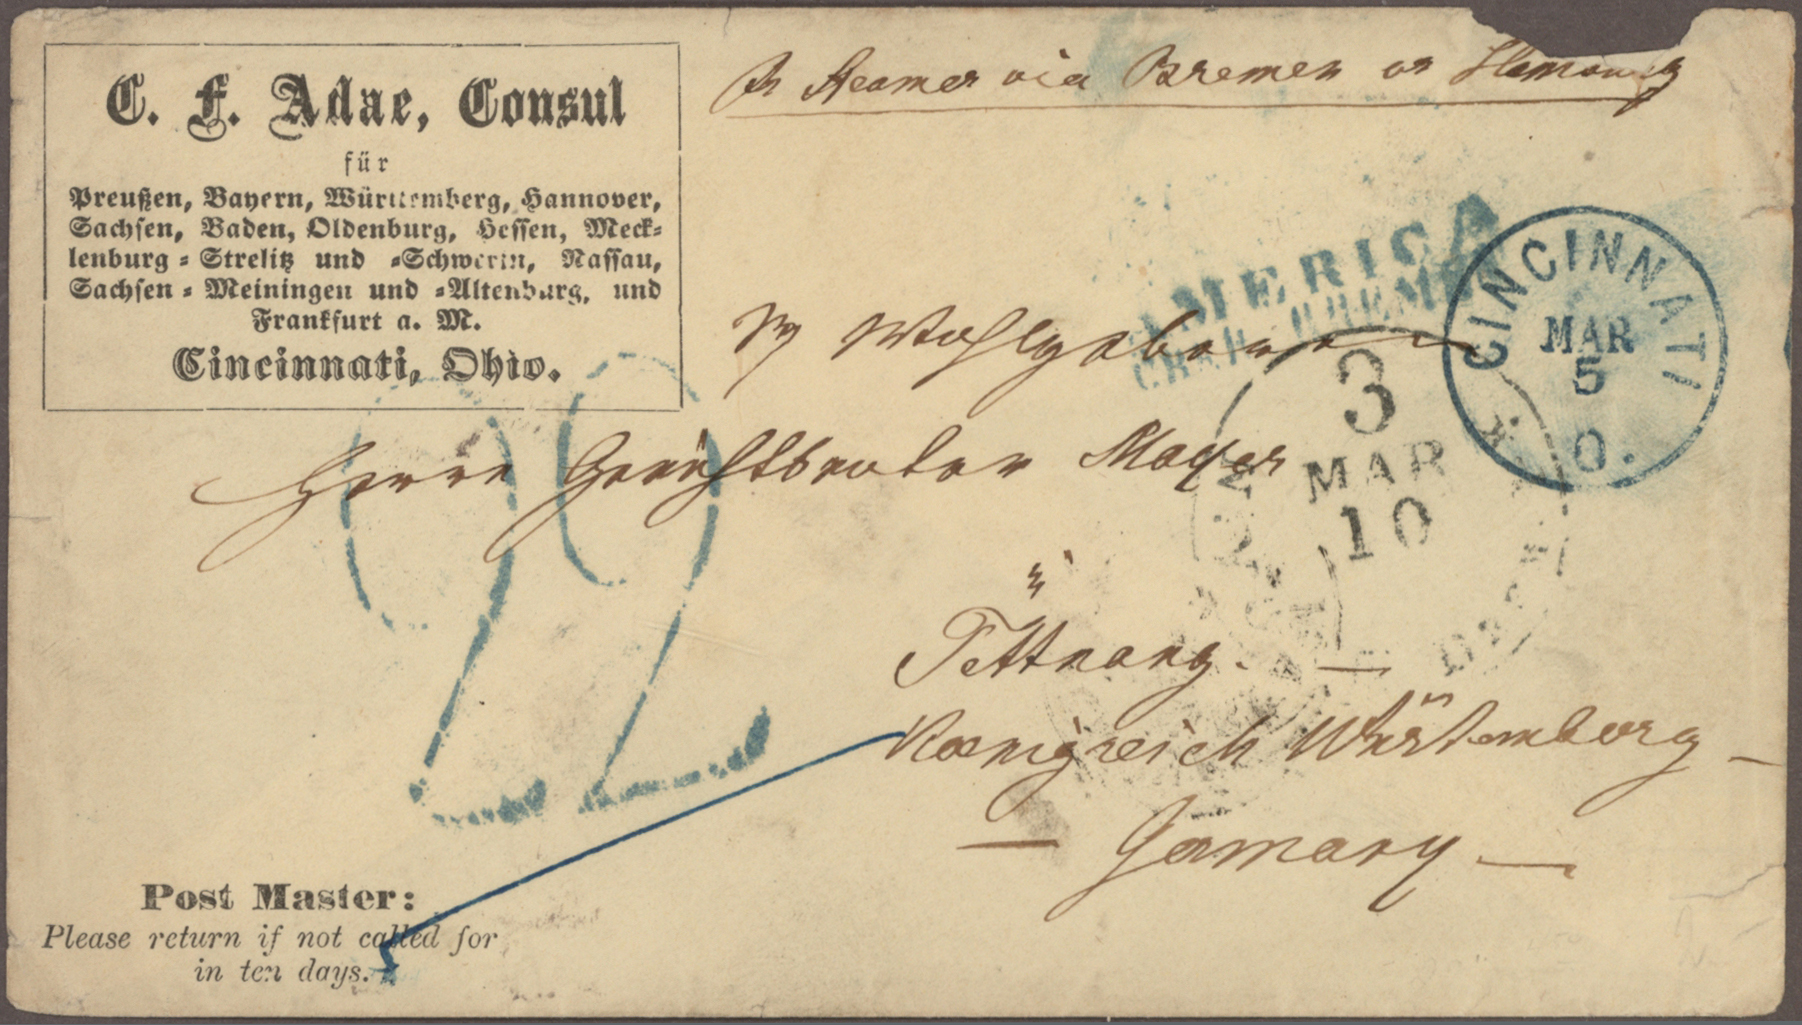 C. F. Adae, Consul
für
Preußen, Bayern, Württemberg, Hannover,
Sachsen, Baden, Oldenburg, Hessen, Meck-
lenburg-Strelitz und -Schwerin, Nassau,
Sachsen-Meiningen und -Altenburg, und
Frankfurt a. M.
Cincinnati, Ohio.
Steamer via Bremen or Hamburg
AMERICA
CINCINNATI
MAR
5
O.
Wohlgeboren
3
MAR
10
Herrn Mayer
22
in
Tettnang.
Koenigreich Würtemberg
Germany
Post Master:
Please return if not called for
in ten days.